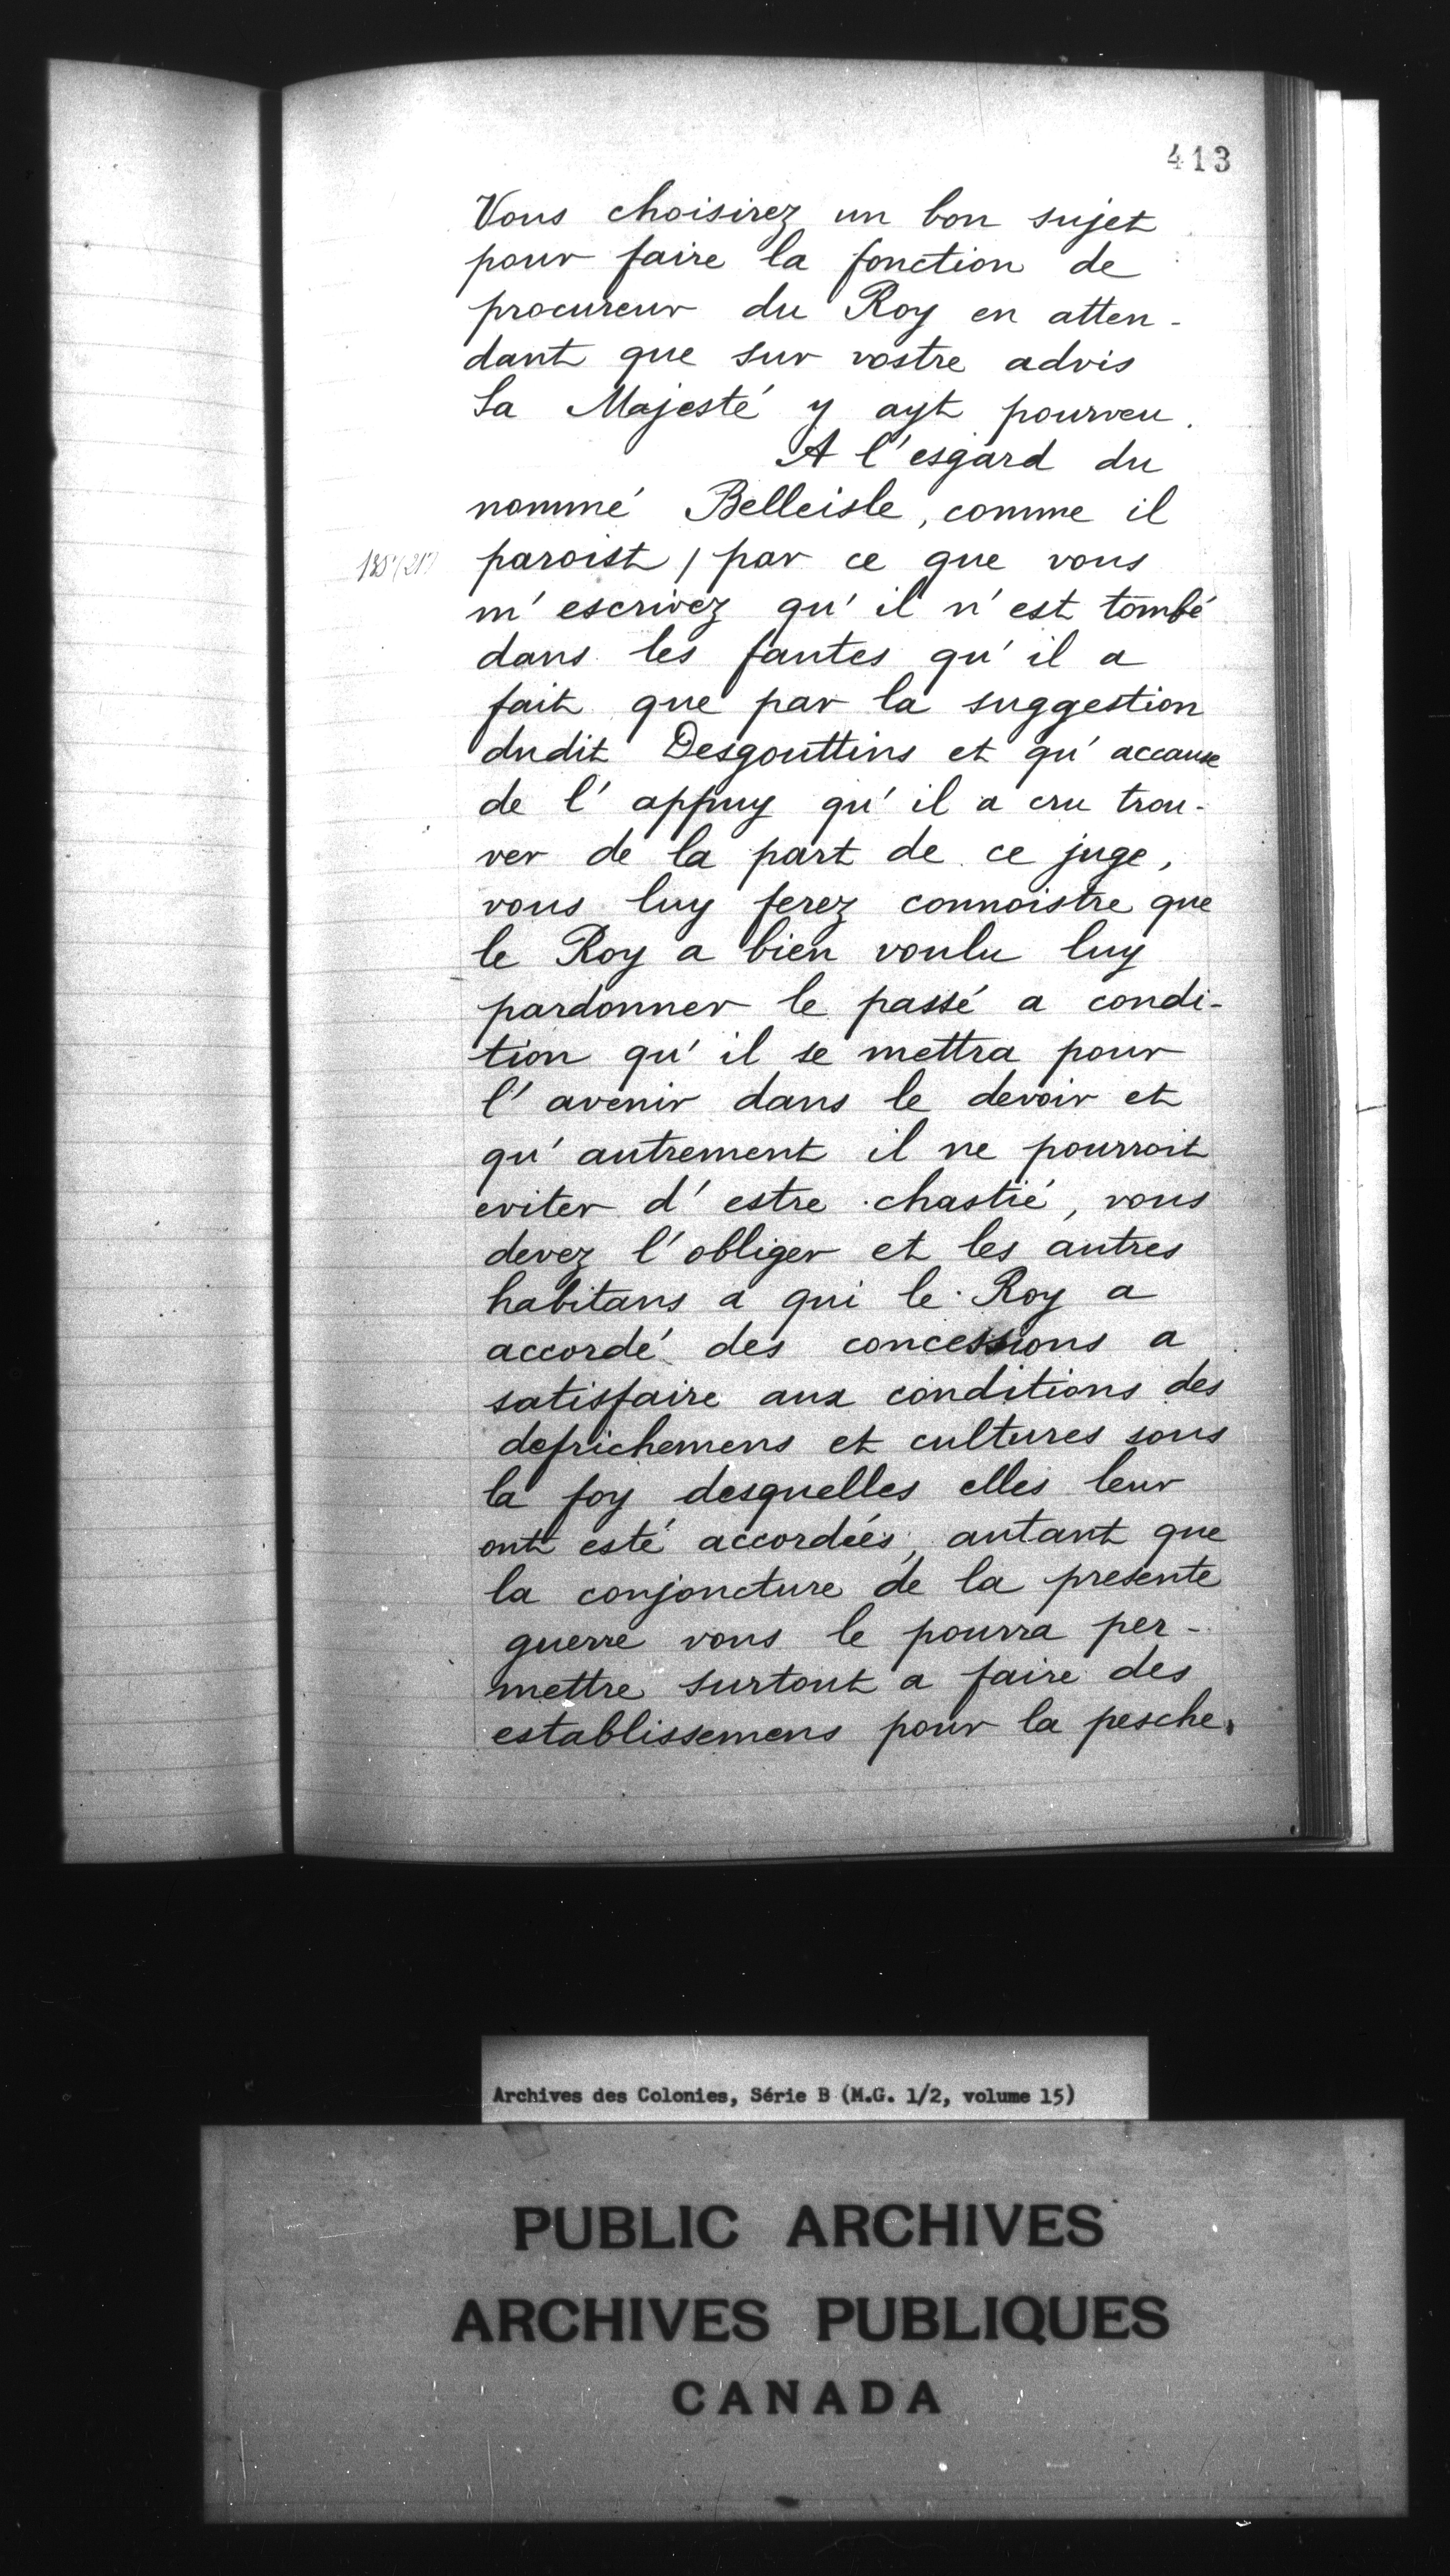 413
Vous choisirez un bon sujet
pour faire la fonction de
procureur du Roy en atten-
dant que sur vostre advis
Sa Majesté y ayt pourveu.
A l'esgard du
nommé Belleisle, comme il
paroist / par ce que vous
m'escrivez qu'il n'est tombé
dans les fautes qu'il a
fait que par la suggestion
dudit Desgouttins et qu'accause
de l'appuy qu'il a cru trou-
ver de la part de ce juge,
vous luy ferez connoistre que
le Roy a bien voulu luy
pardonner le passé a condi-
tion qu'il se mettra pour
l'avenir dans le devoir et
qu'autrement il ne pourroit
eviter d'estre chastié, vous
devez l'obliger et les autres
habitans a qui le Roy a
accordé des concessions a
satisfaire aux conditions des
defrichemens et cultures sous
la foy desquelles elles leur
ont esté accordées, autant que
la conjoncture de la presente
guerre vous le pourra per-
mettre surtout a faire des
establissemens pour la pesche.
Archives des Colonies, Série B (M.G. 1/2, volume 15)
PUBLIC ARCHIVES
ARCHIVES PUBLIQUES
CANADA